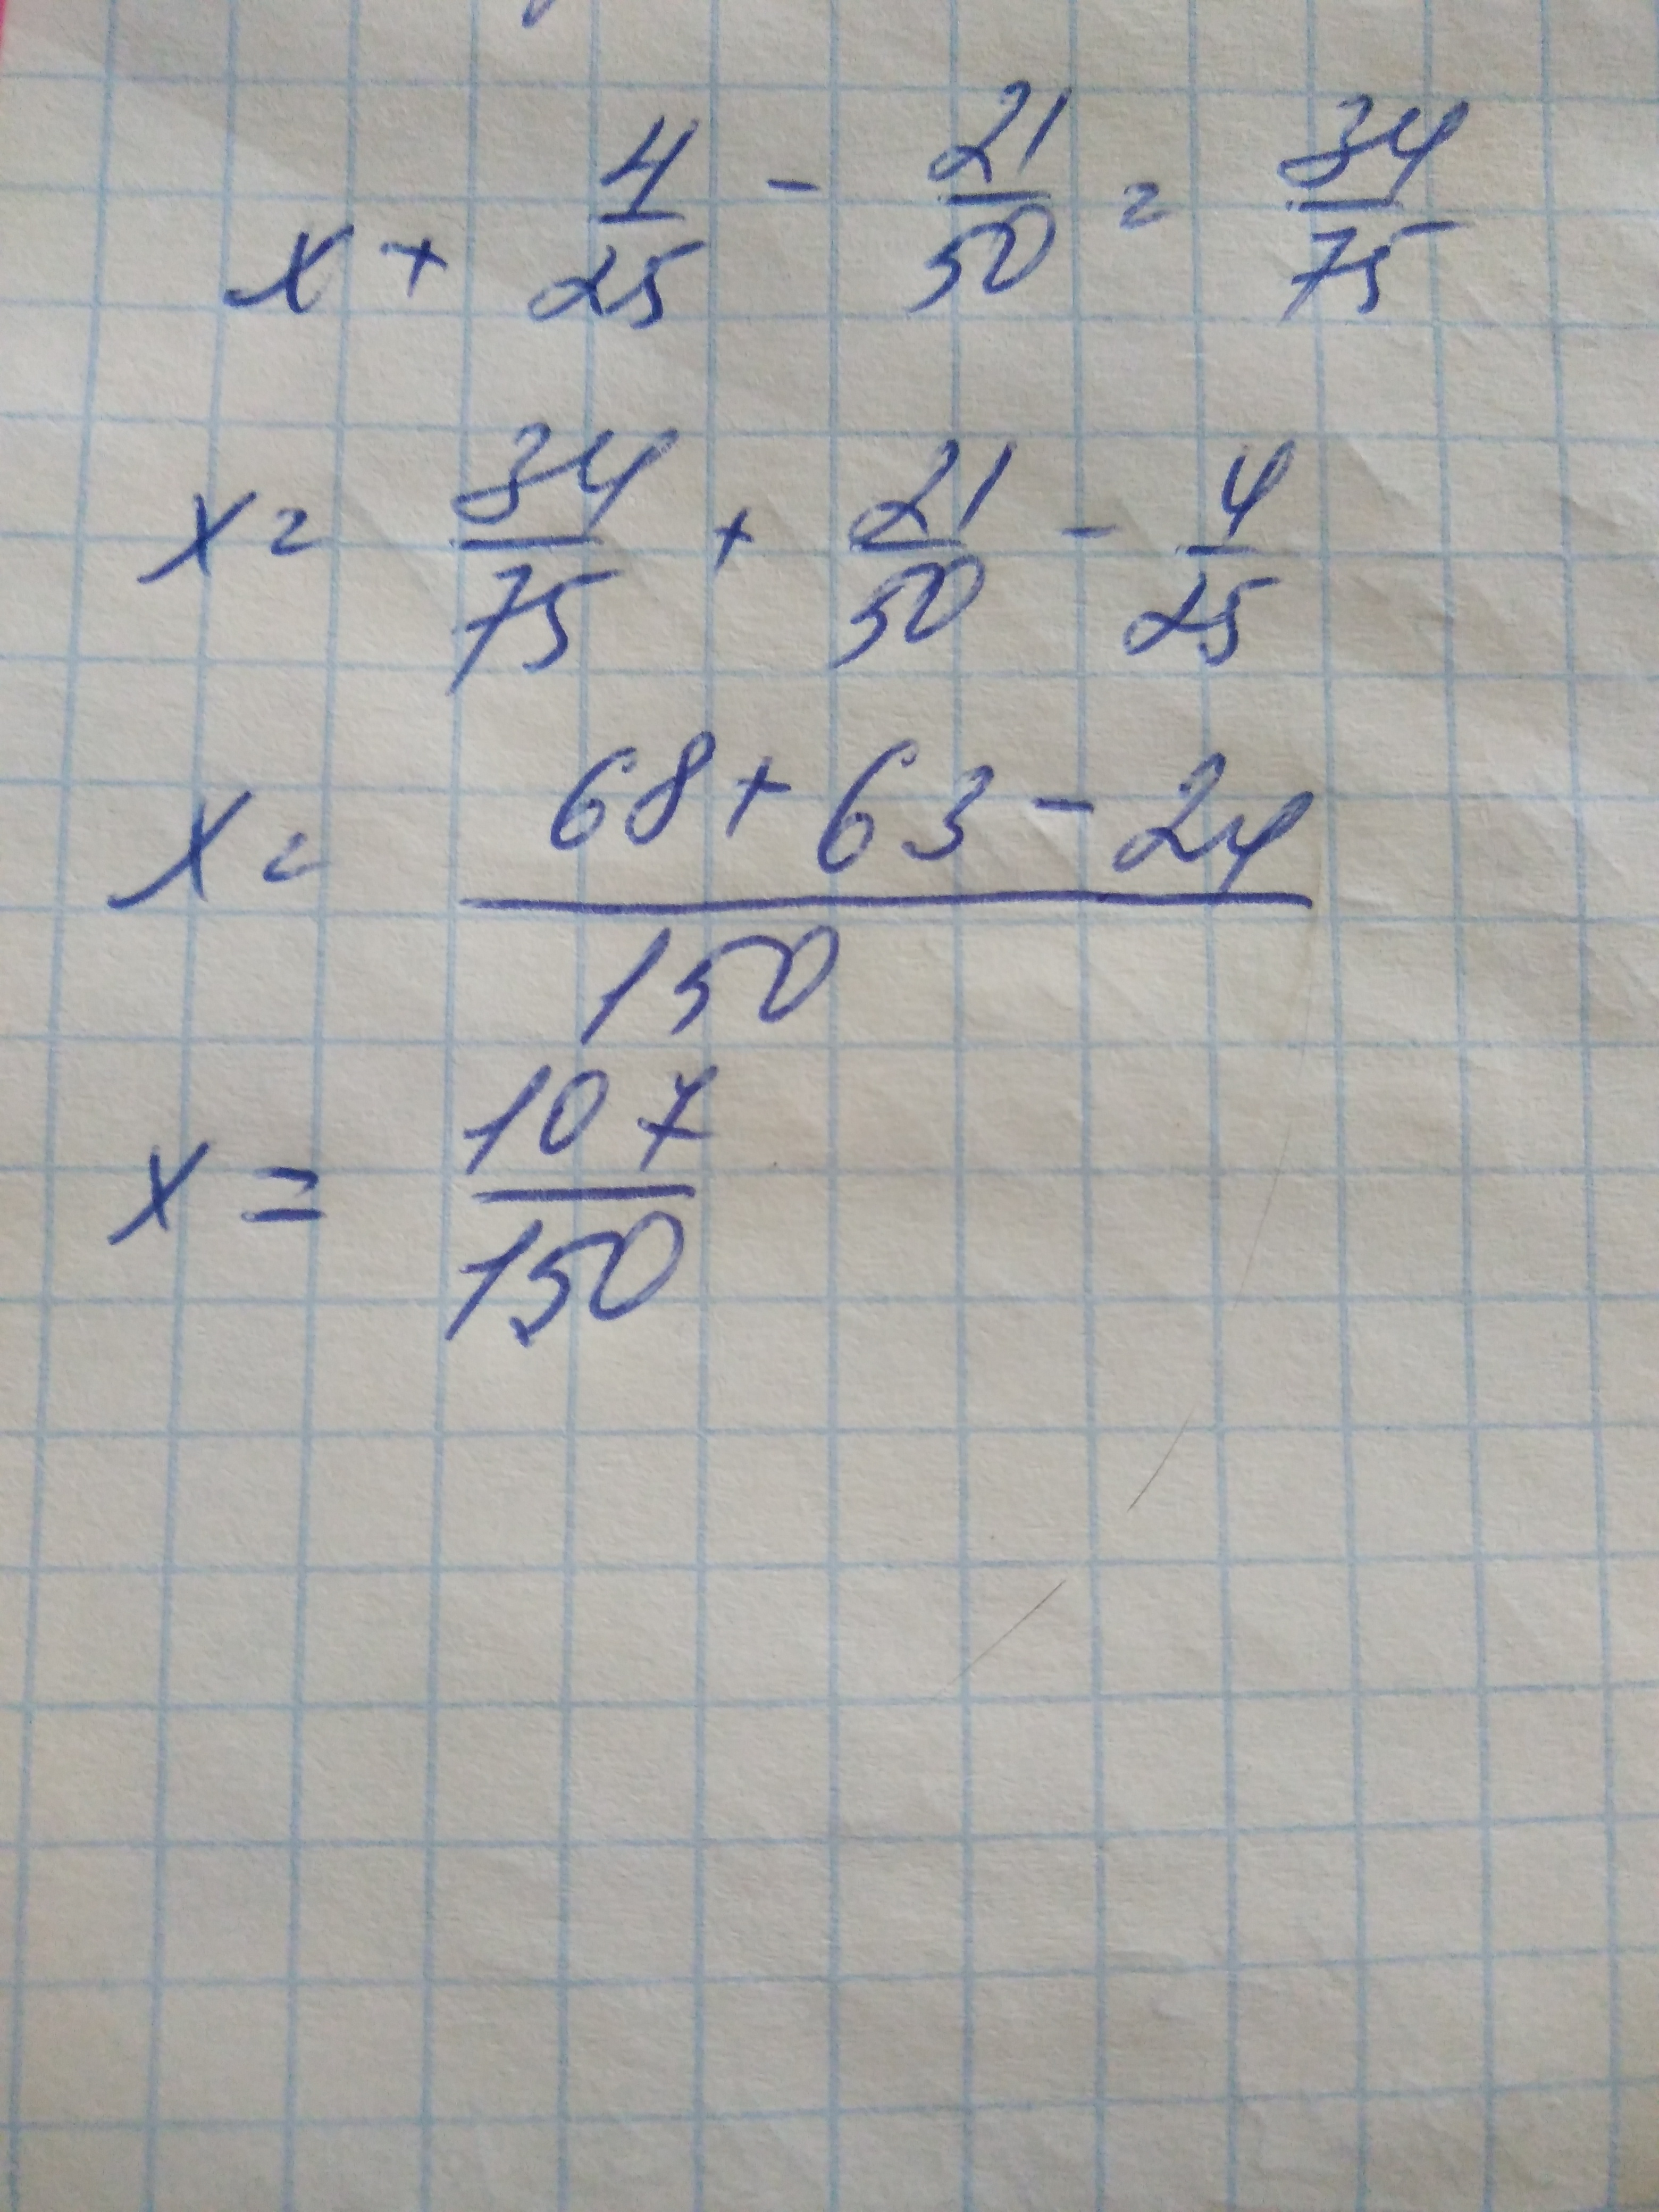 x + 4/25 - 21/50 = 34/75
x = 34/75 + 21/50 - 4/25
x = (68 + 63 - 24)/150
x = 107/150